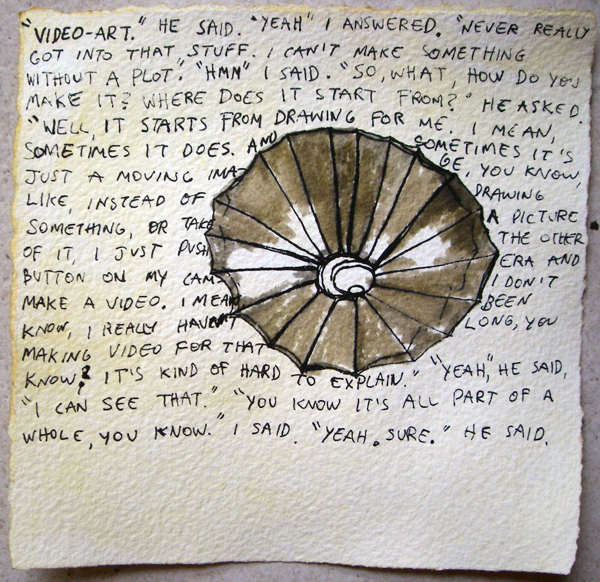 "VIDEO-ART." HE SAID. "YEAH" I ANSWERED. "NEVER REALLY
GOT INTO THAT STUFF. I CAN'T MAKE SOMETHING
WITHOUT A PLOT". "HMM" I SAID. "SO, WHAT, HOW DO YOU
MAKE IT? WHERE DOES IT START FROM?" HE ASKED.
"WELL, IT STARTS FROM DRAWING FOR ME. I MEAN,
SOMETIMES IT DOES. AND SOMETIMES IT'S
JUST A MOVING IMA GE, YOU KNOW,
LIKE, INSTEAD OF DRAWING
SOMETHING, OR TAKE A PICTURE
OF IT, I JUST PUSH THE OTHER
BUTTON ON MY CAM ERA AND
MAKE A VIDEO. I MEAN I DON'T
KNOW, I REALLY HAVEN'T BEEN
MAKING VIDEO FOR THAT LONG, YOU
KNOW? IT'S KIND OF HARD TO EXPLAIN." "YEAH," HE SAID,
"I CAN SEE THAT." "YOU KNOW IT'S ALL PART OF A
WHOLE, YOU KNOW." I SAID. "YEAH. SURE." HE SAID.